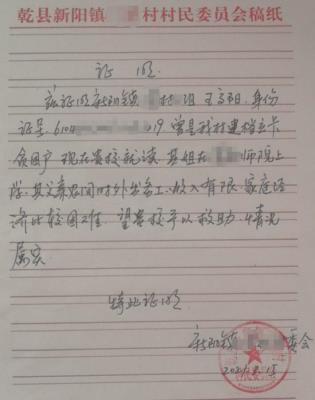 乾县新阳镇 村村民委员会稿纸
证 明
兹证明新阳镇 村 组 王 阳,身份
证号:6104 019 曾是我村建档立卡
贫困户 现在贵校就读,其姐在 师院上
学,其父亲农闲时外出务工,收入有限,家庭经
济比较困难,望贵校予以救助,情况
属实
特此证明
新阳镇 委会